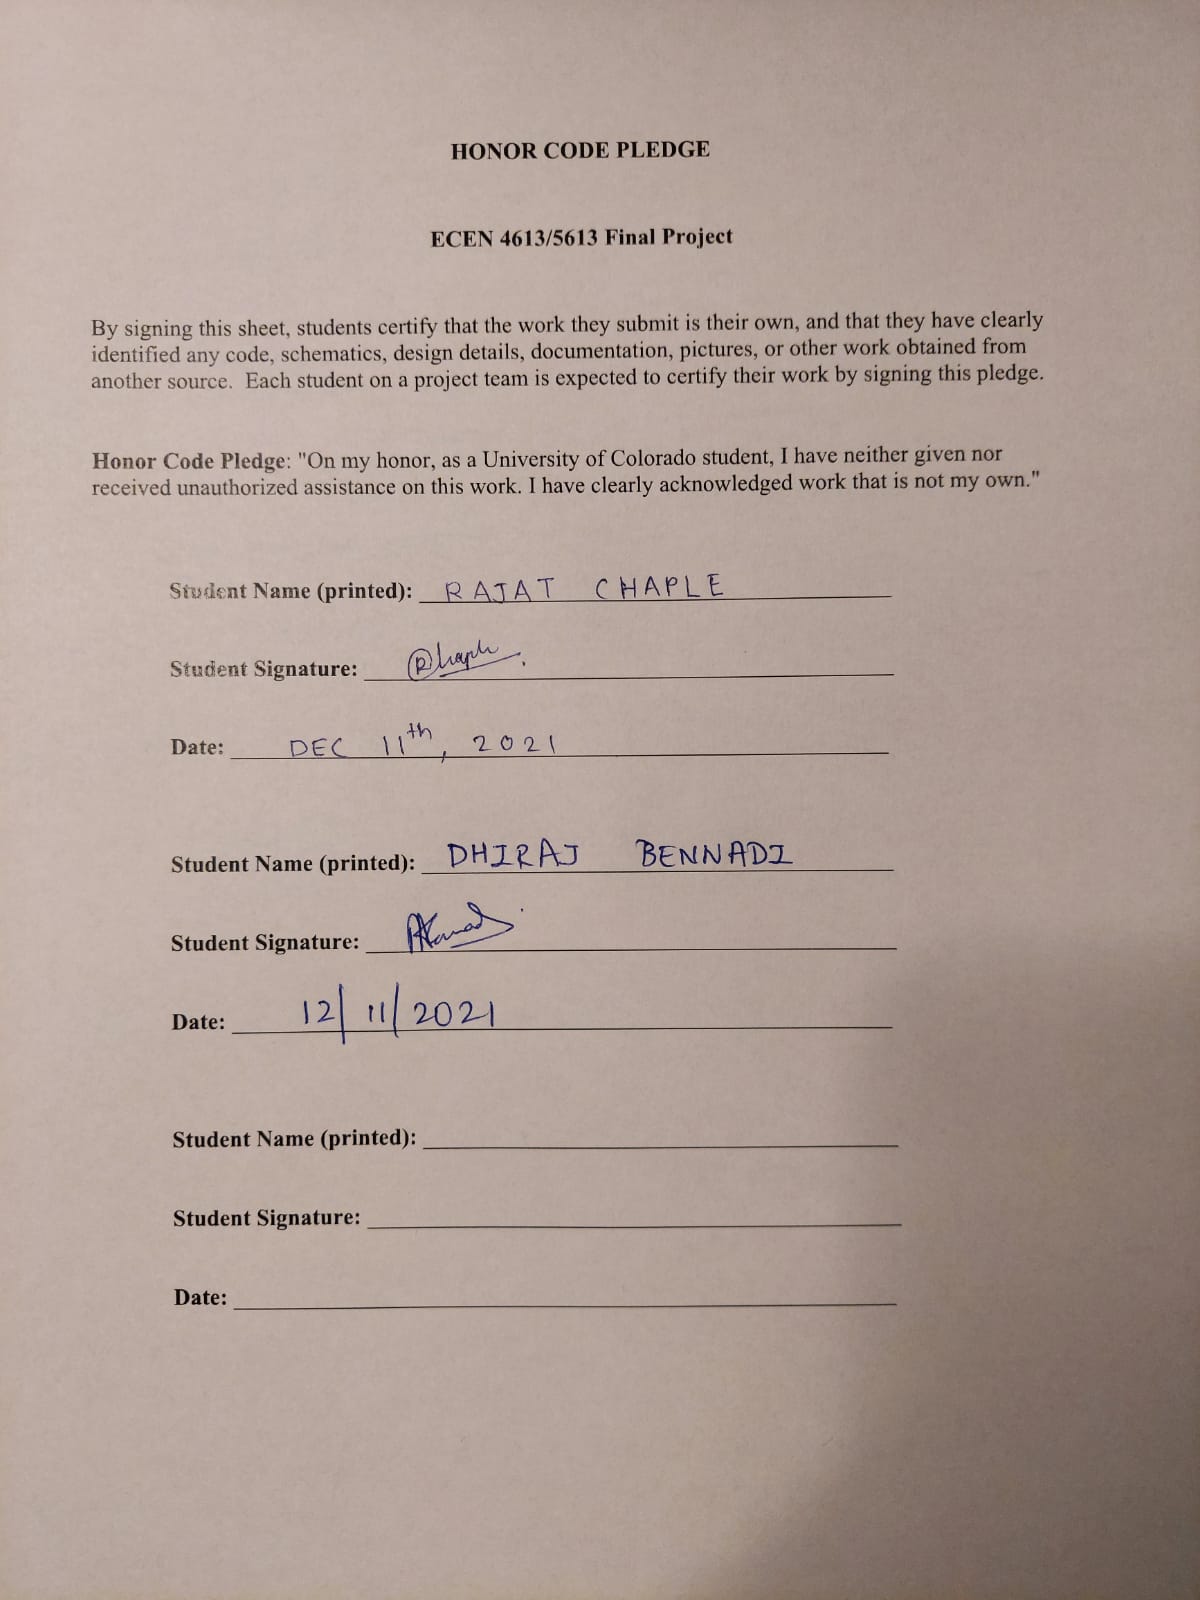 HONOR CODE PLEDGE
ECEN 4613/5613 Final Project
By signing this sheet, students certify that the work they submit is their own, and that they have clearly
identified any code, schematics, design details, documentation, pictures, or other work obtained from
another source. Each student on a project team is expected to certify their work by signing this pledge.
Honor Code Pledge: "On my honor, as a University of Colorado student, I have neither given nor
received unauthorized assistance on this work. I have clearly acknowledged work that is not my own."
Student Name (printed): RAJAT CHAPLE
Student Signature:
Date: DEC 11th, 2021
Student Name (printed): DHIRAJ BENNADI
Student Signature:
Date: 12/11/2021
Student Name (printed):
Student Signature:
Date: